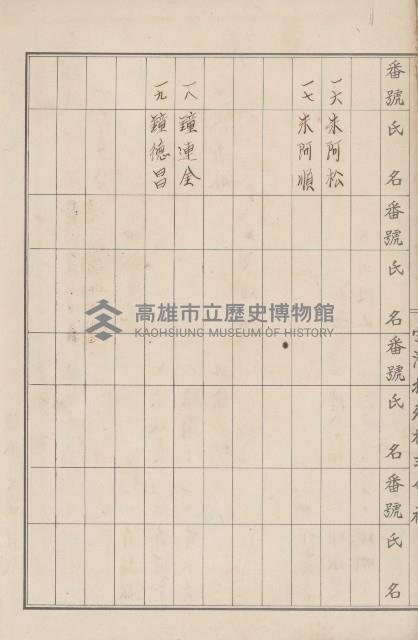 番號 氏名 番號 氏名 番號 氏名 番號 氏名
一六 朱阿松
一七 朱阿順
一八 鐘連金
一九 鐘德昌
高雄市立歷史博物館
KAOHSIUNG MUSEUM OF HISTORY